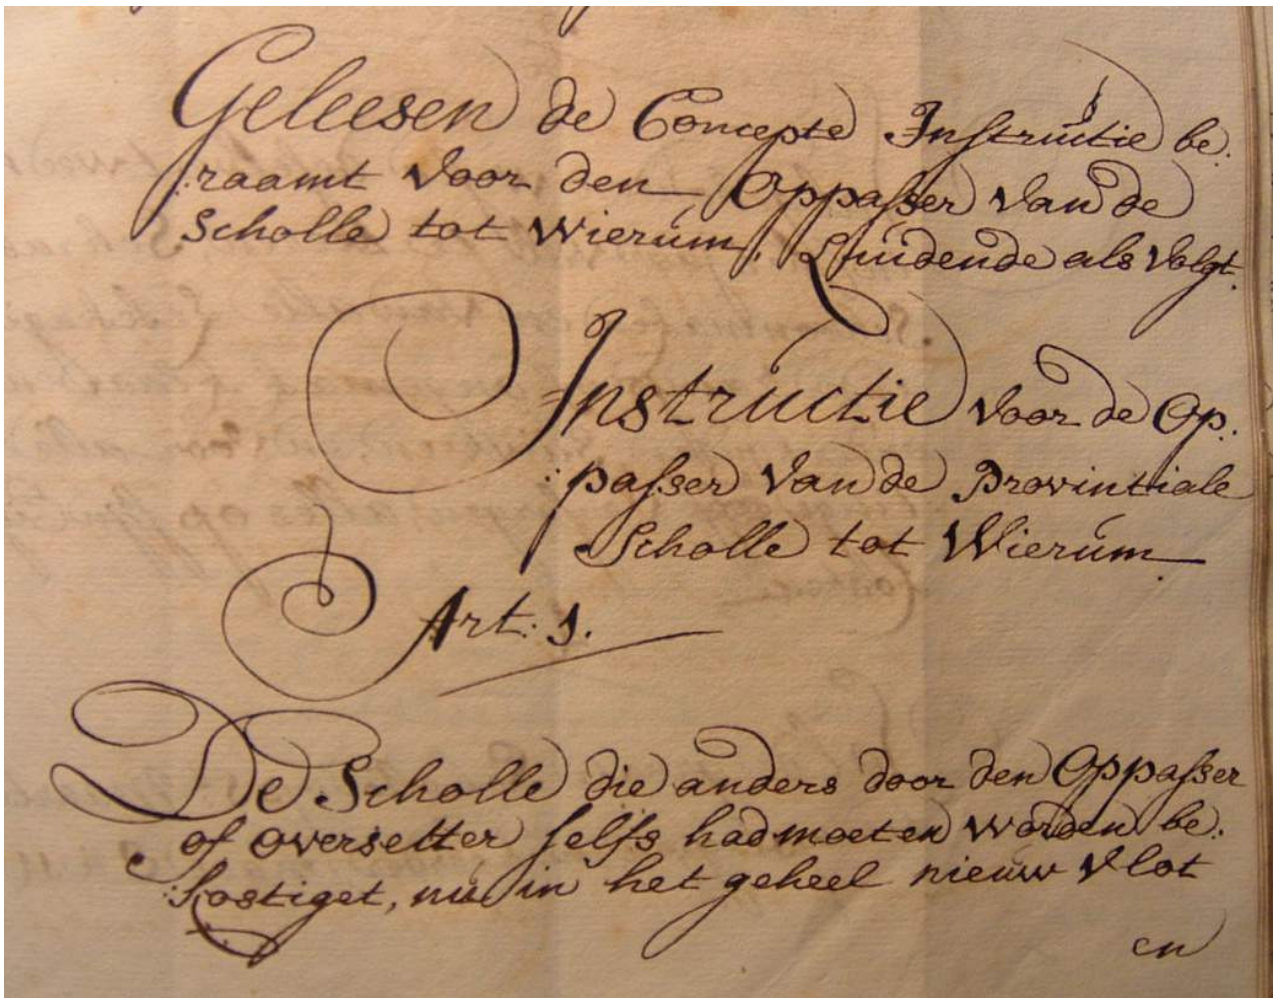 Geleesen de Concepte Instructie be:
:raamt voor den Oppasser van de
Scholle tot Wierum, Luidende als volgt.
Instructie voor de Op:
:passer van de Provintiale
Scholle tot Wierum
Art: 1.
De Scholle die anders door den Oppasser
of oversetter selfs had moeten worden be:
:kostiget, nu in het geheel nieuw vlot
en